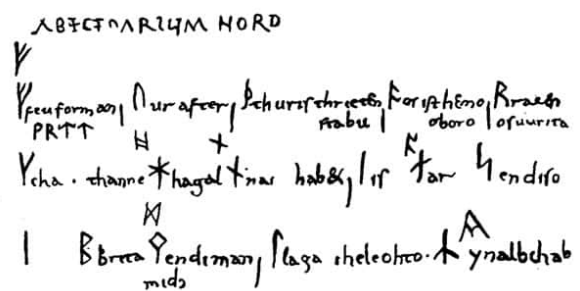 ABECEDARIUM NORD
ᚠ
ᚠ feuforman, ᚢ ur after, ᚦ thuris thriten stabu, ᚭ os ist hemo oboro, ᚱ rat end os uurita
ᚴ cha. thanne ᚼ hagal ᚾ nau habet, ᛁ is ᛅ ar ᛋ endi so
ᛁ ᛒ brica ᛉ endi man midi, ᛚ laga the leohto. ᛦ yr al bihab